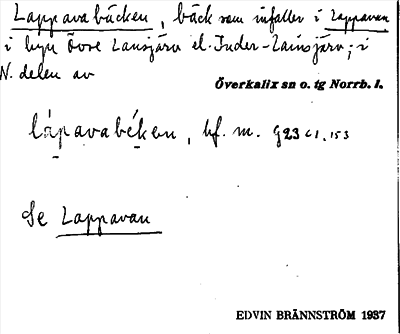 Lappavabäcken, bäck som infaller i Lappavan
i byn Övre Lansjärv el. Inder-Lansjärv; i
N. delen av
Överkalix sn o. tg Norrb. l.
lápavabékẹn, bf. m. G23 c 1.153
Se Lappavan
EDVIN BRÄNNSTRÖM 1937